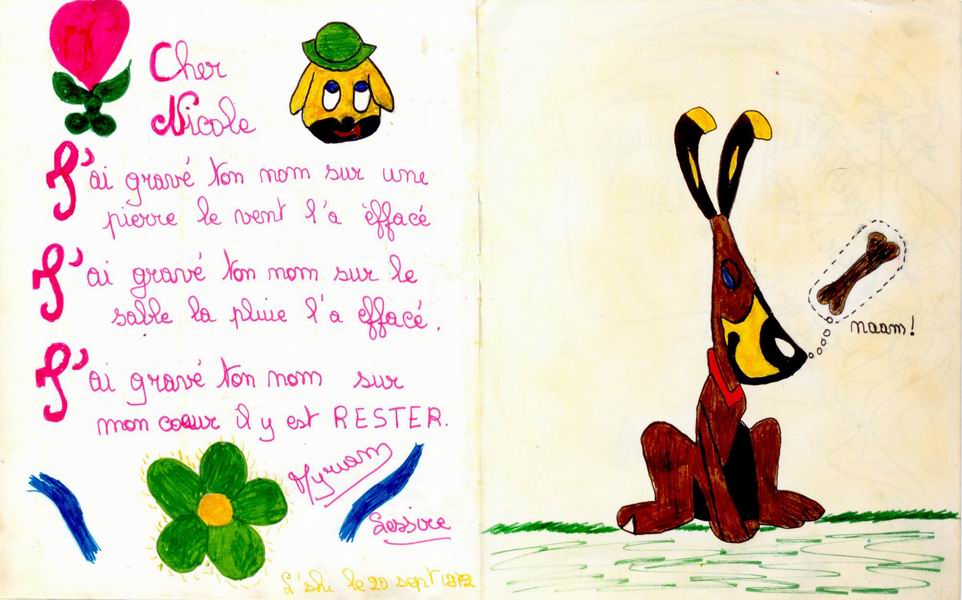 Cher
Nicole
J'ai gravé ton nom sur une
pierre le vent l'a éffacé
J'ai gravé ton nom sur le
sable la pluie l'a éffacé.
J'ai gravé ton nom sur
mon coeur il y est RESTER.
Myriam
le 20 sept
naam!